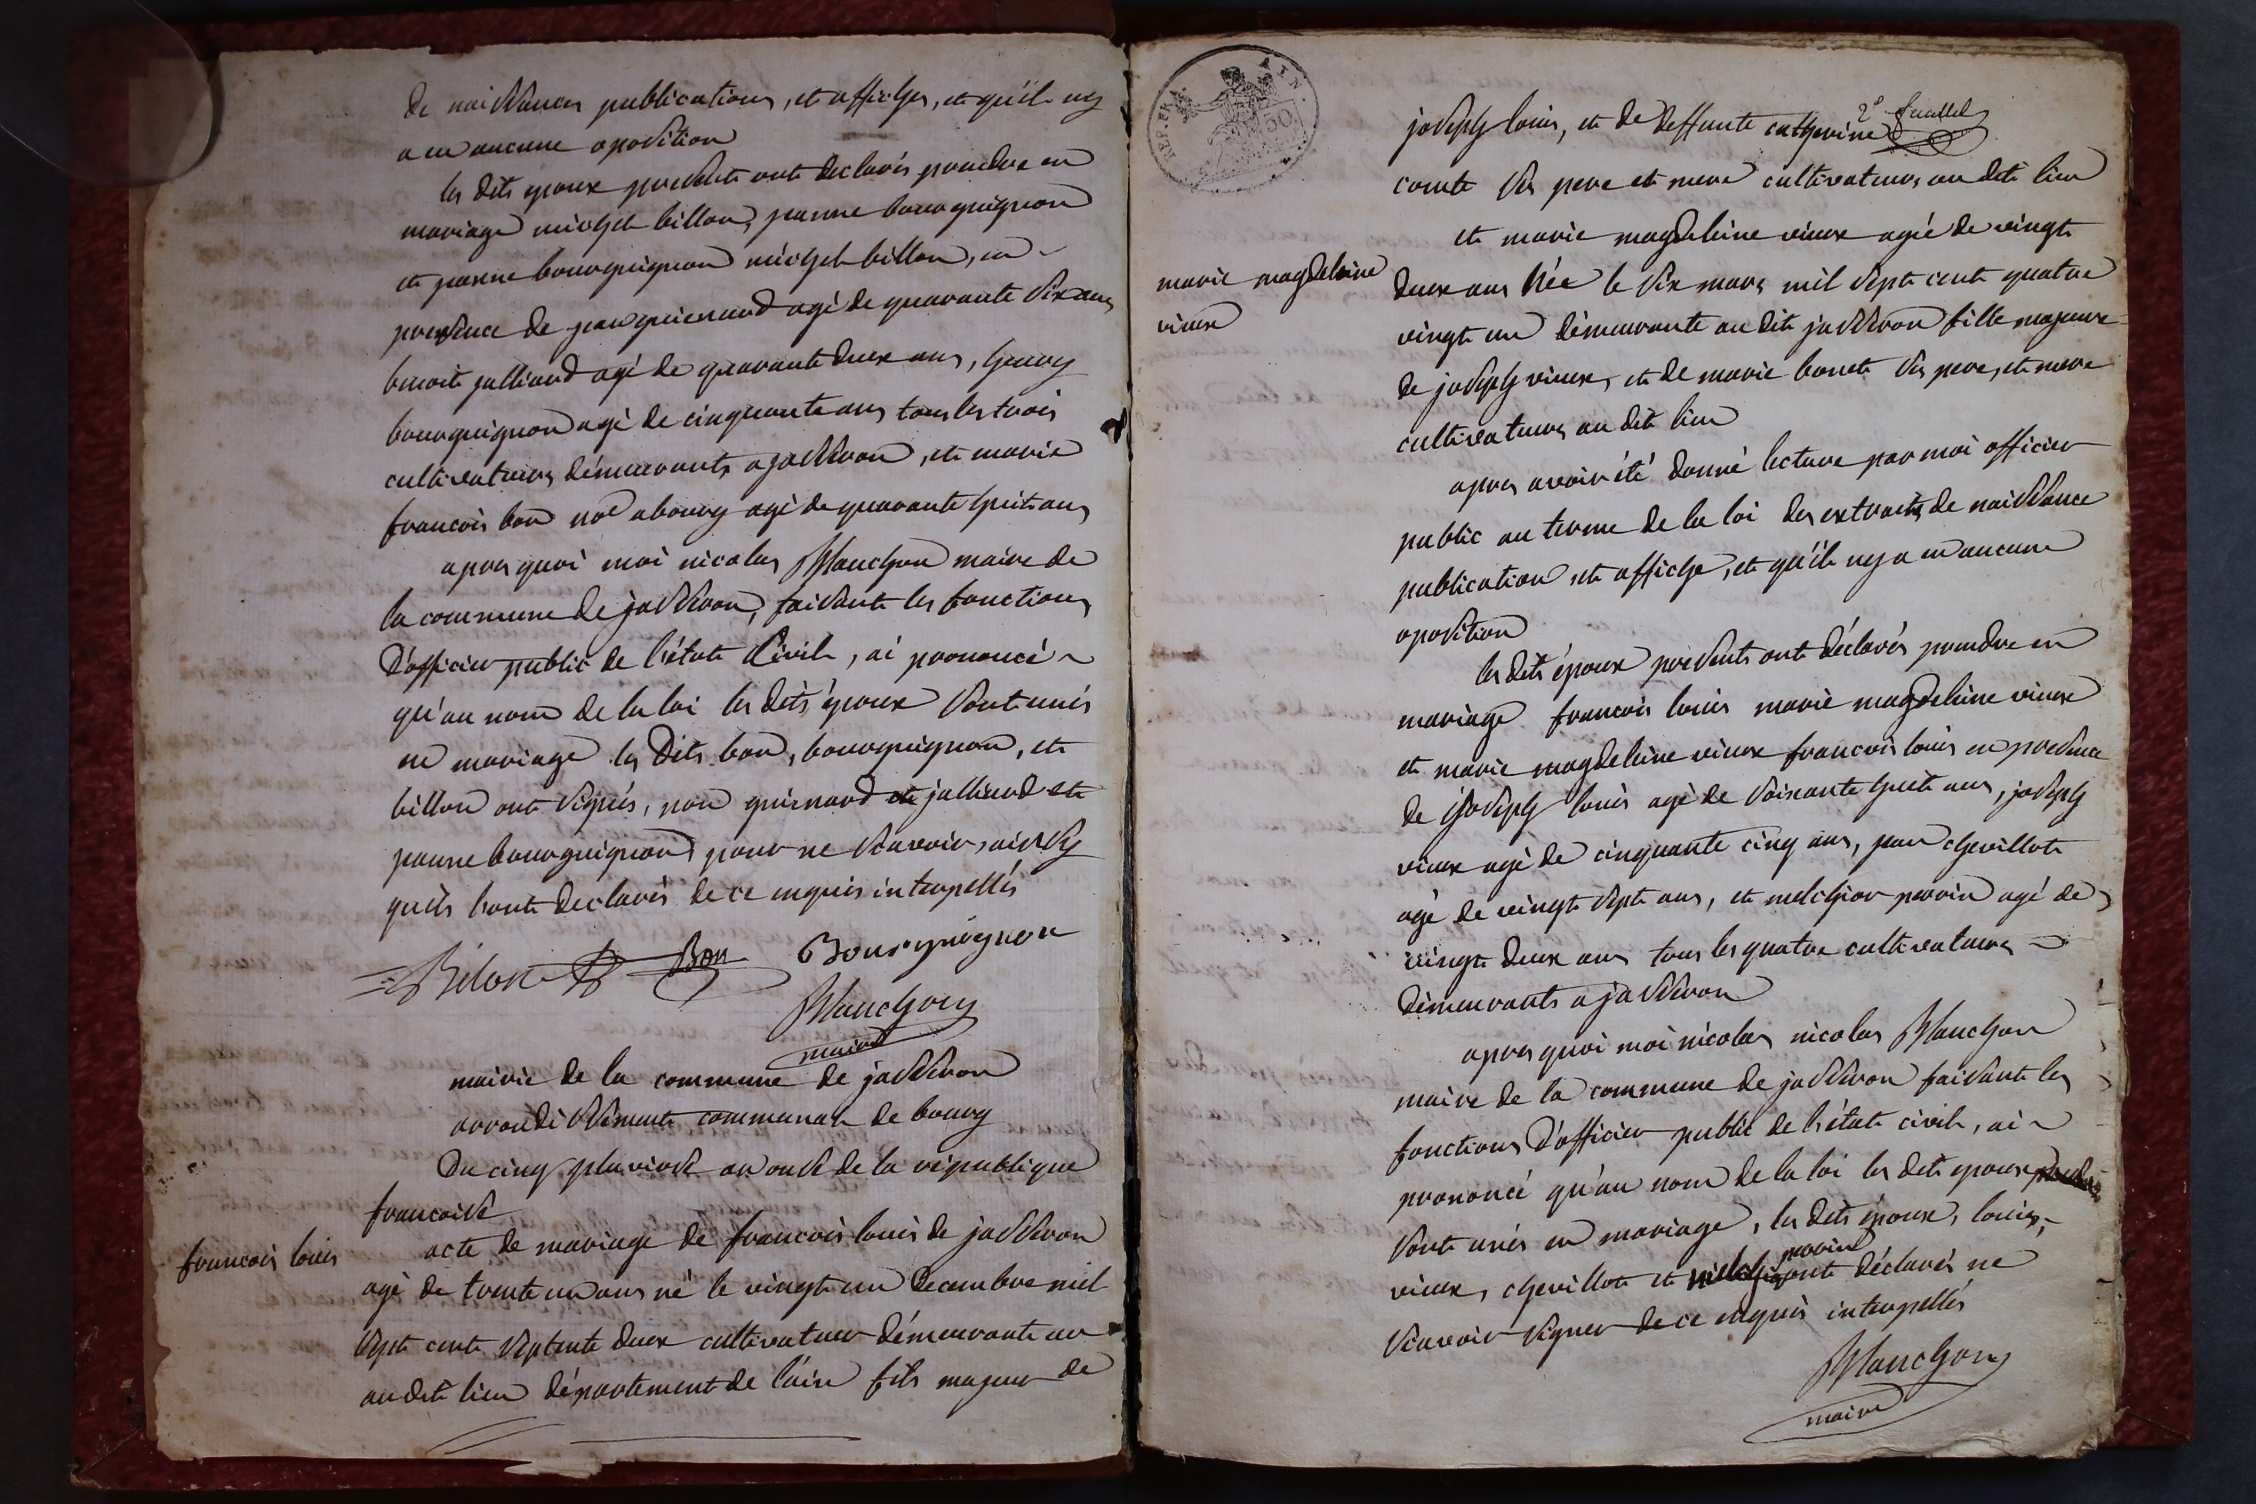 de naissances publications, et affiches, et qu'il ny
a eu aucune oposition
les dits epoux presents ont declarés prendre en
mariage michel billon, jeanne bourguignon
et jeanne bourguignon michel billon, en
presence de jean guienard agé de quarante six ans
benoit jalliard agé de quarante deux ans, henry
bourguignon agé de cinquante ans tous les trois
cultivateurs démeurants a jasseron, et marie
francois bon no.e a bourg agé de quarante huit ans
apres quoi moi nicolas Planchon maire de
la commune de jasseron, faisante les fonctions
D'officier public de l'état Civil, ai prononcé
qu'au nom de la loi les dits époux sont unis
en mariage les Dits bon, bourguignon, et
billon ont signés, non guienard et jalliard et
jeanne bourguignon pour ne scavoir, ainsy
qu'ils l'ont declarés de ce enquis interpellés
Bilon Bon Bourguignon
Planchon
maire
mairie de la commune de jasseron
arrondissement communal de bourg
Du cinq pluviose an onse de la république
francoise
francois louis
acte de mariage de francois louis de jasseron
agé de trente un ans né le vingt un decembre mil
sept cent septente deux cultivateur démeurante au
au dit lieu département de l'ain fils majeur de
REP. FRA. AIN.
joseph louis, et de deffunte catherine
comte ses pere et mere cultivateurs au dit lieu
marie magdeleine
vieux
et marie magdeleine vieux agée de vingt
deux ans Née le six mars mil sept cent quatre
vingt un démeurante au dit jasseron fille majeure
de joseph vieux, et de marie bonet ses pere, et mere
cultivateurs au dit lieu
apres avoir été donné lecture par moi officier
public au terme de la loi des extraits de naissance
publication, et affiche, et qu'il ny a eu aucune
oposition
les dits époux presents ont déclarés prendre en
mariage francois louis marie magdeleine vieux
et marie magdeleine vieux francois louis en presence
de joseph louis agé de soixante huit ans, joseph
vieux agé de cinquante cinq ans, jean chevillot
agé de vingt sept ans, et melchior perrin agé de
vingt deux ans tous les quatre cultivateurs
Démeurants a jasseron
apres quoi moi nicolas nicolas Planchon
maire de la commune de jasseron faisante les
fonctions D'officier public de l'état civil, ai
prononcé qu'au nom de la loi les dits epoux
sont unis en mariage, les dits époux, louis,
vieux, chevillot et perrin ont déclarés ne
scavoir signer de ce enquis interpellés
Planchon
maire